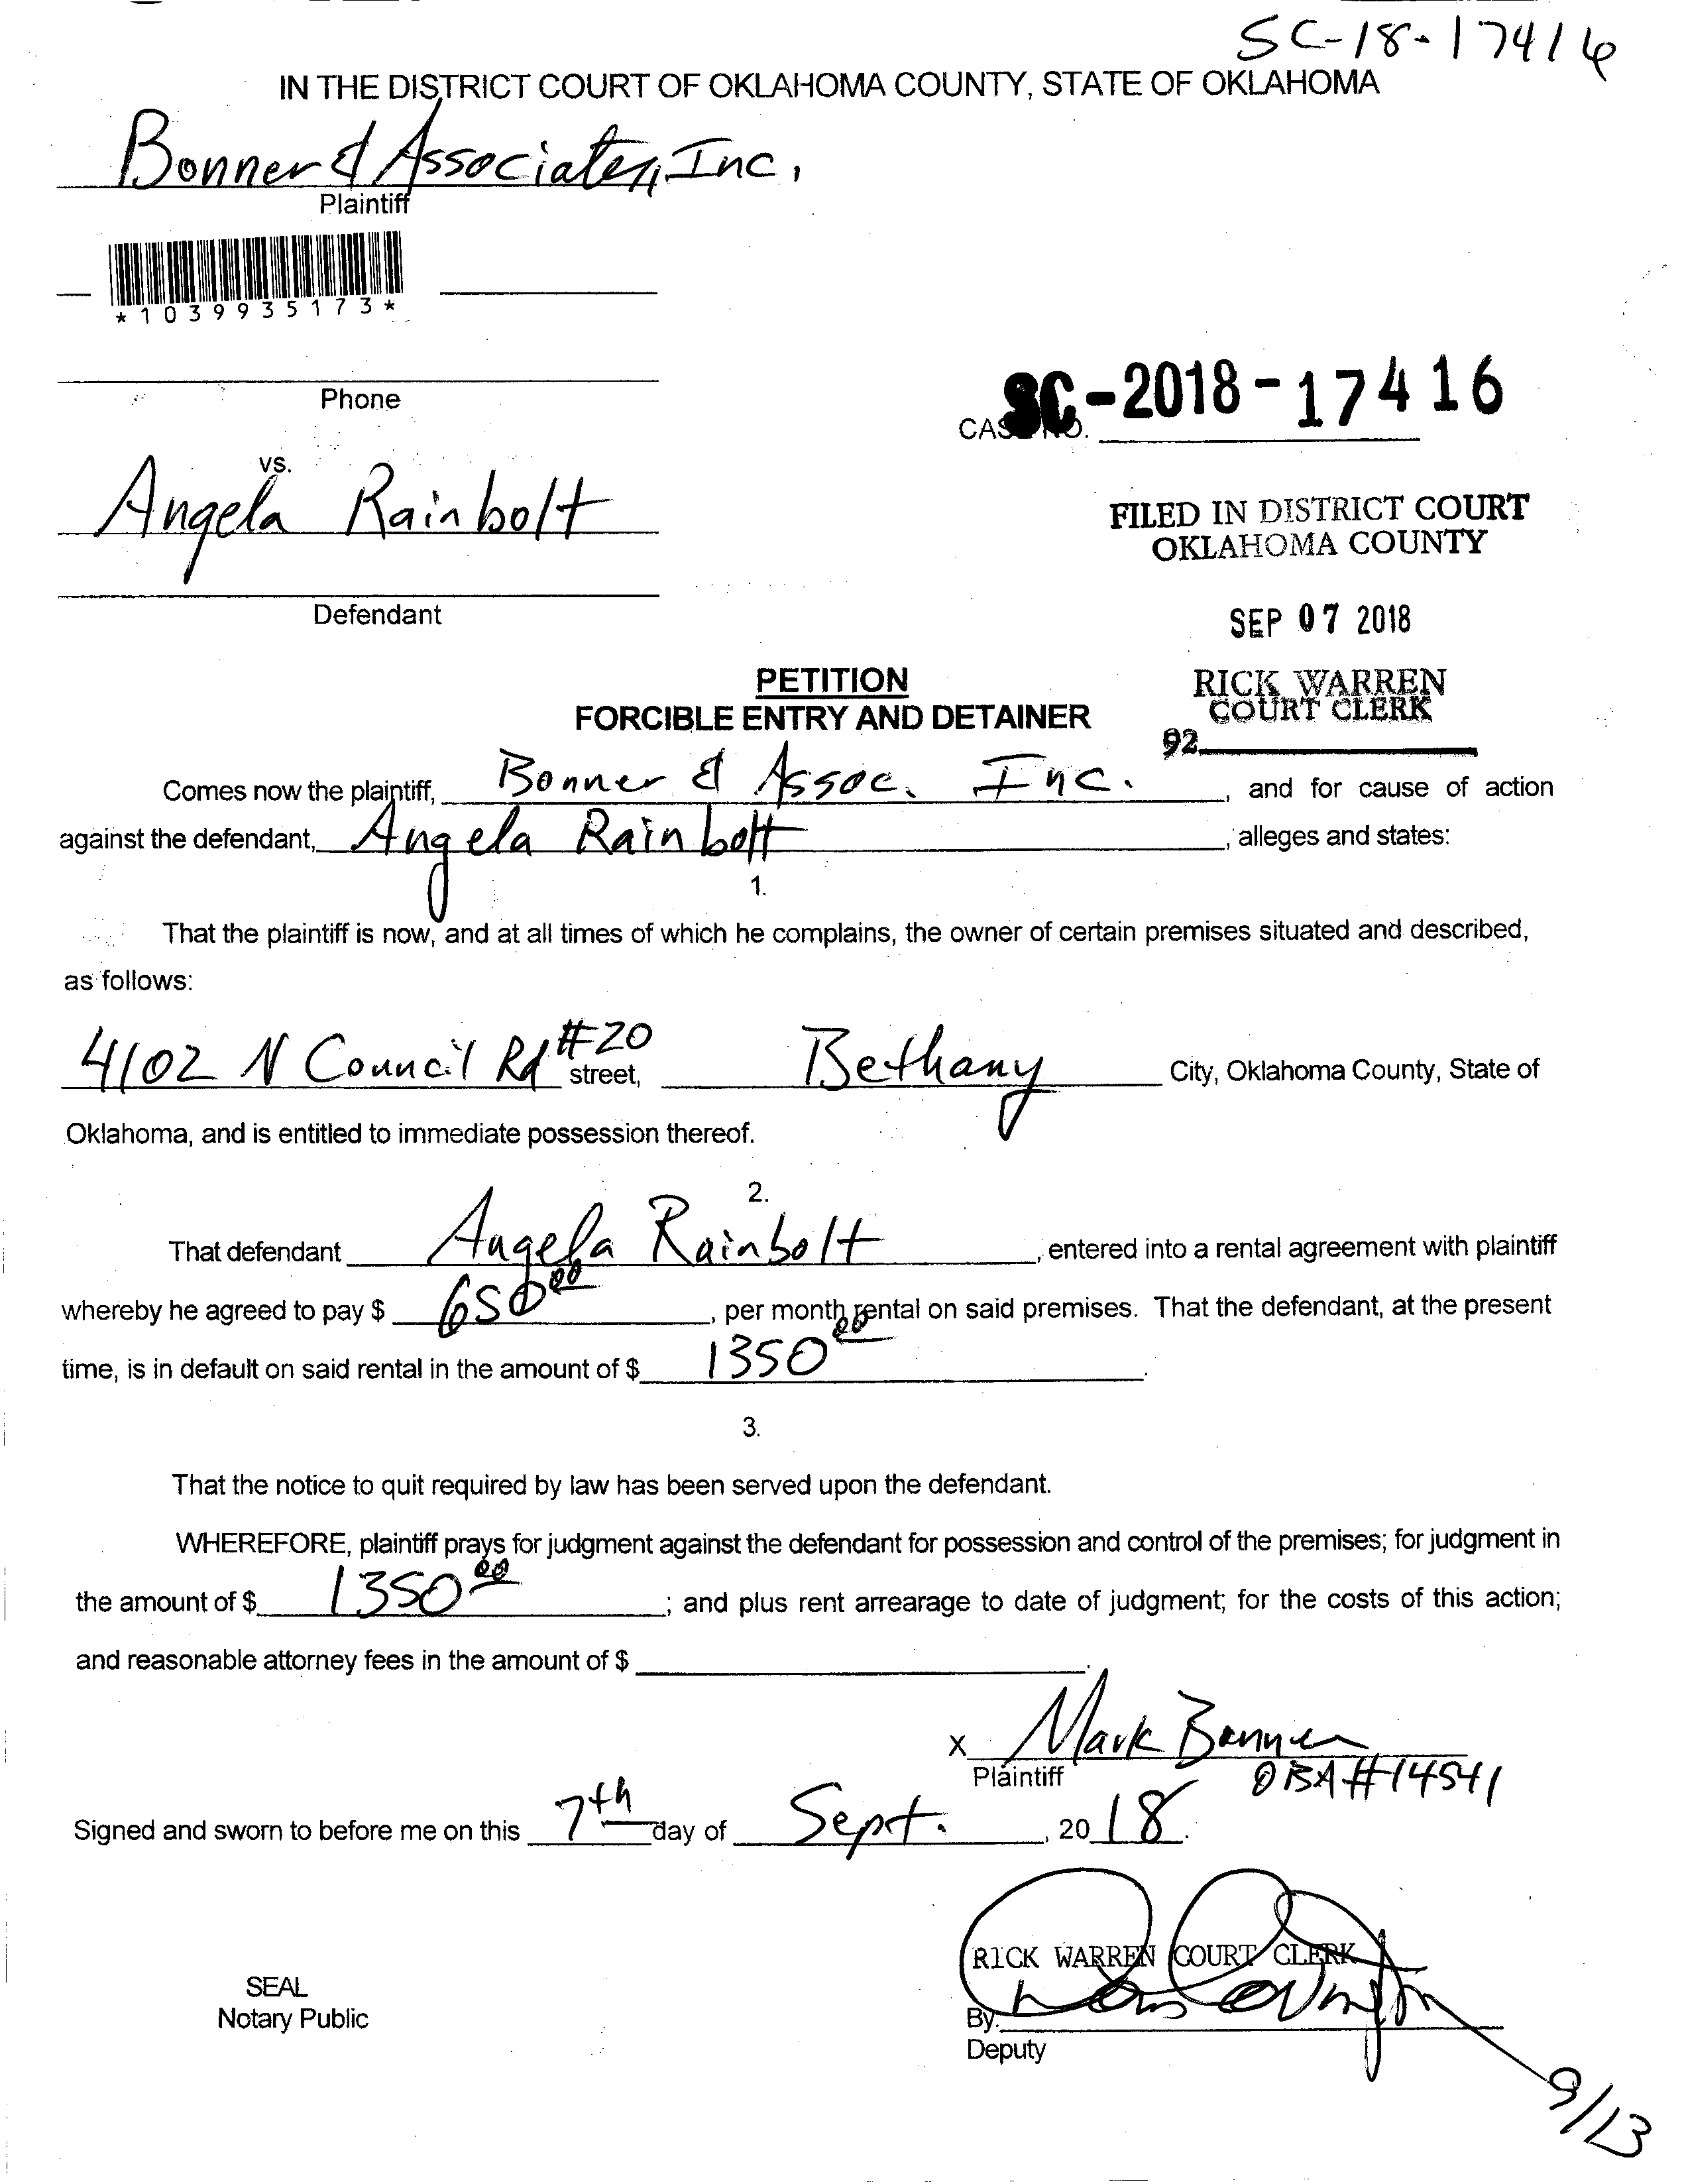 SC-18-17416
IN THE DISTRICT COURT OF OKLAHOMA COUNTY, STATE OF OKLAHOMA
Bonner & Associates, Inc.
Plaintiff
*1039935173*
Phone
SC-2018-17416
CASE NO.
vs.
Angela Rainbolt
FILED IN DISTRICT COURT
OKLAHOMA COUNTY
Defendant
SEP 07 2018
PETITION
FORCIBLE ENTRY AND DETAINER
RICK WARREN
COURT CLERK
92
Comes now the plaintiff, Bonner & Assoc. Inc., and for cause of action
against the defendant, Angela Rainbolt, alleges and states:
1.
That the plaintiff is now, and at all times of which he complains, the owner of certain premises situated and described,
as follows:
4102 N Council Rd #20 street, Bethany City, Oklahoma County, State of
Oklahoma, and is entitled to immediate possession thereof.
2.
That defendant Angela Rainbolt, entered into a rental agreement with plaintiff
whereby he agreed to pay $ 650 00, per month rental on said premises. That the defendant, at the present
time, is in default on said rental in the amount of $ 1350 00.
3.
That the notice to quit required by law has been served upon the defendant.
WHEREFORE, plaintiff prays for judgment against the defendant for possession and control of the premises; for judgment in
the amount of $ 1350 00; and plus rent arrearage to date of judgment; for the costs of this action;
and reasonable attorney fees in the amount of $ .
x Mark Bonner
Plaintiff OBA #14541
Signed and sworn to before me on this 7th day of Sept., 2018.
RICK WARREN COURT CLERK
SEAL
Notary Public
By:
Deputy
9/13